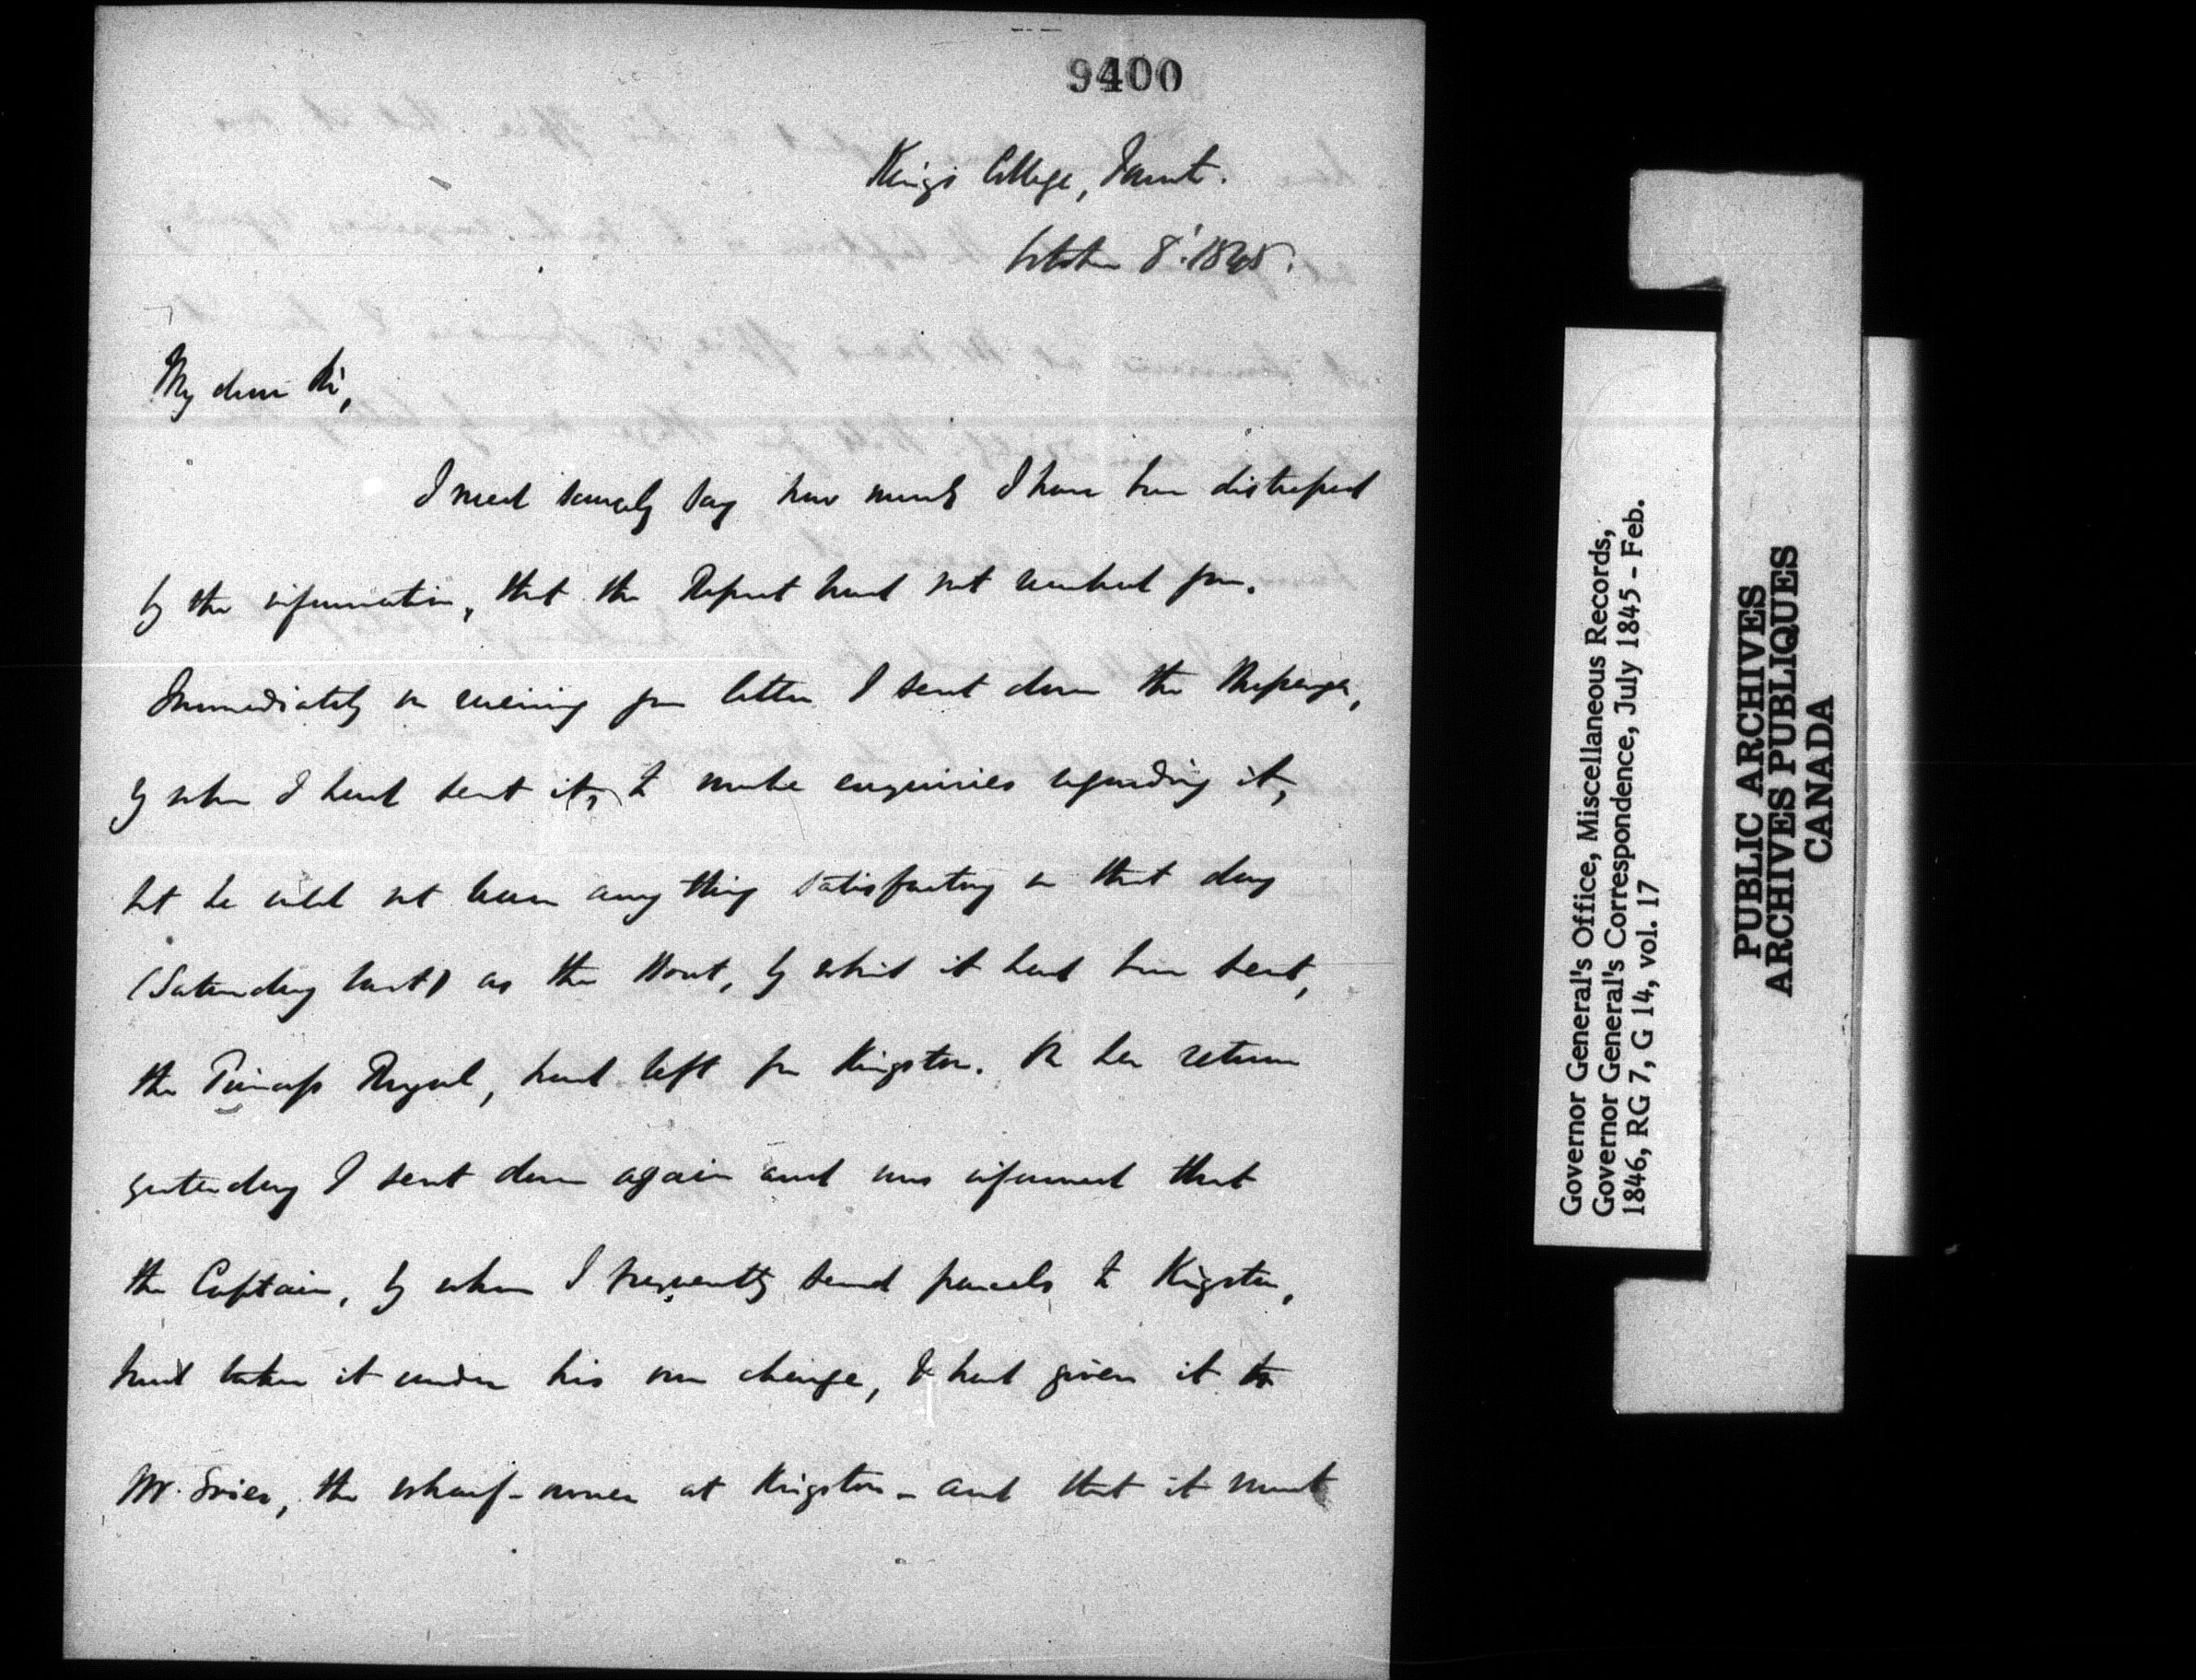 9400
King's College, Toront.
October 8'. 1845.
My dear Sir,
I need scarcely say how much I have been distressed
by the information, that the Report had not reached you.
Immediately on receiving your letter I sent down the Messenger,
by whom I had sent it, to make enquiries regarding it,
but he could not learn any thing satisfactory on that day
(Saturday last) as the Boat, by which it had been sent,
the Princess Royal, had left for Kingston. On her return
yesterday I sent down again and was informed that
the Captain, by whom I frequently send parcels to Kingston,
had taken it under his own charge, & had given it to
Mr. Grier, the wharf-owner at Kingston - and that it must
Governor General's Office, Miscellaneous Records,
Governor General's Correspondence, July 1845 - Feb.
1846, RG 7, G 14, vol. 17
PUBLIC ARCHIVES
ARCHIVES PUBLIQUES
CANADA